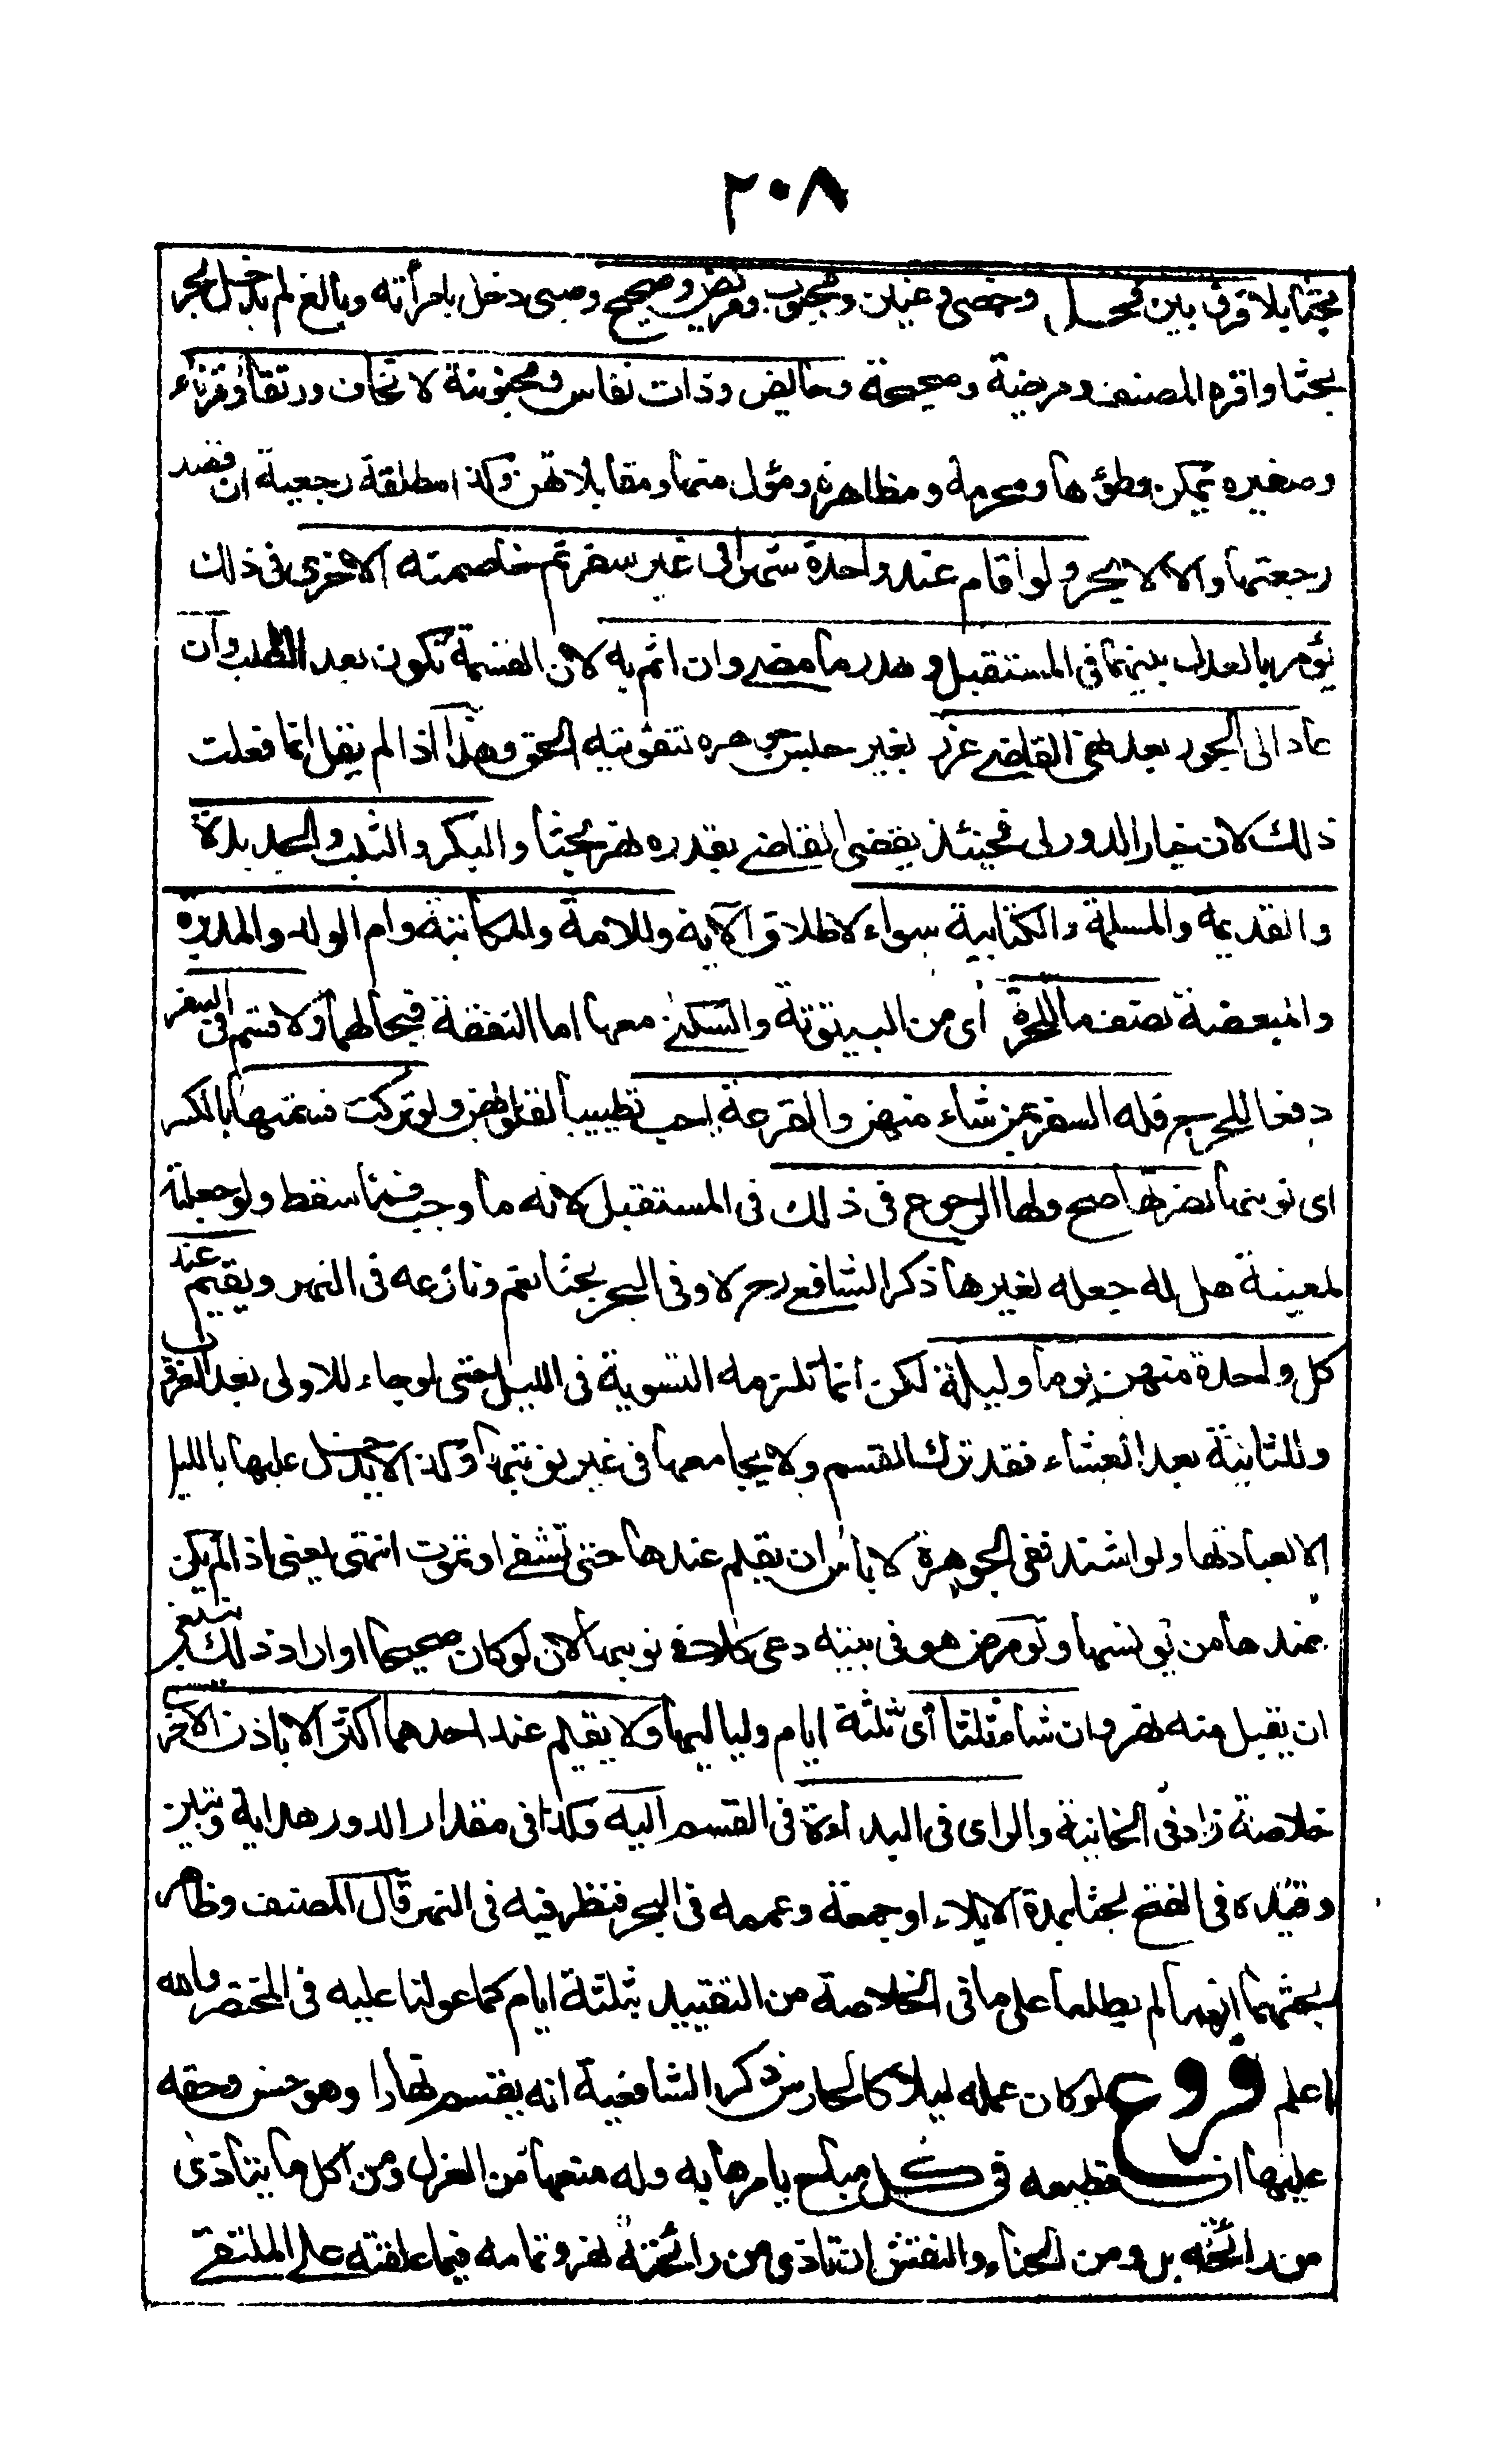 ٢٠٨
بحثا بلا فرق بين فحل وخصى وعنين ومجبوب ومريض وصحيح وصبى دخل بامرأته وبالغ لم يدخل بحر
بحثا واقره المصنف ومريضة وصحيحة وحائض وذات نفاس ومجنونة لا تخاف ورتقاء وقرناء
وصغيره يمكن وطؤها ومحرمة ومظاهرة ومؤل منها ومقابلاتهن وكذا مطلقة رجعية ان قصد
رجعتها والا لا بحر ولو أقام عند واحدة شهرا فى غير سفر ثم خاصمته الاخرى فى ذلك
يؤمر بالعدل بينهما فى المستقبل وهدر ما مضى وان اثم به لان القسمة تكون بعد الطلب وان
عاد الى الجور بعد نهى القاضى عزر بغير حبس جوهره لتفويته الحق وهذا اذا لم يقل انما فعلت
ذلك لان خيار الدور لى فحينئذ يقضى القاضى بقدره نهر بحثا والبكر والثيب والجديدة
والقديمة والمسلمة والكتابية سواء لاطلاق الآية وللامة والمكاتبة وام الولد والمدبرة
والمبعضة نصف ما للحرة أى من البيتوتة والسكنى معها اما النفقة فبحالهما ولا قسم فى السفر
دفعا للحرج فله السفر بمن شاء منهن والقرعة احب تطييبا لقلوبهن ولو تركت قسمها بالكسر
اى نوبتها لضرتها صح ولها الرجوع فى ذلك فى المستقبل لانه ما وجب فما سقط ولو جعلته
لمعينة هل له جعله لغيرها ذكر الشافعى رح لا وفى البحر بحثا نعم ونازعه فى النهر ويقيم عند
كل واحدة منهن يوما وليلة لكن انما تلزمه التسوية فى الليل حتى لو جاء للاولى بعد الغروب
وللثانية بعد العشاء فقد ترك القسم ولا يجامعها فى غير نوبتها وكذا لا يدخل عليها بالليل
الا لعيادتها ولو اشتد ففى الجوهرة لا باس ان يقيم عندها حتى تشفى او تموت انتهى يعنى اذا لم يكن
عندها من يونسها ولو مرض هو فى بيته دعى كلا فى نوبتها لان لو كان صحيحا اوارادذ ذلك ينبغى
ان يقبل منه نهر وان شاء ثلثا أى ثلثة ايام ولياليها ولا يقيم عند احدهما اكثر الا باذن الاخرى
خلاصة زاد فى الخانية والراى فى البداءة فى القسم اليه وكذا فى مقدار الدور هداية وتبين
وقيده فى الفتح بحثا بمدة الايلاء او جمعة وعممه فى البحر فنظر فيه فى النهر قال المصنف وظاهر
بحثهما انهما لم يطلعا على ما فى الخلاصة من التقييد بثلثة ايام كما عولنا عليه فى المختصر والله
اعلم فروع لو كان عمله ليلا كالحارس ذكر الشافعية انه يقسم نهارا وهو حسن وحقه
عليها ان تطيعه فى كل مباح يامرها به وله منعها من الغزل ومن اكل ما يتأذى
من رائحته بل ومن الحناء والنقش ان تاذى من رائحته نهر وتمامه فيما علقته على الملتقى